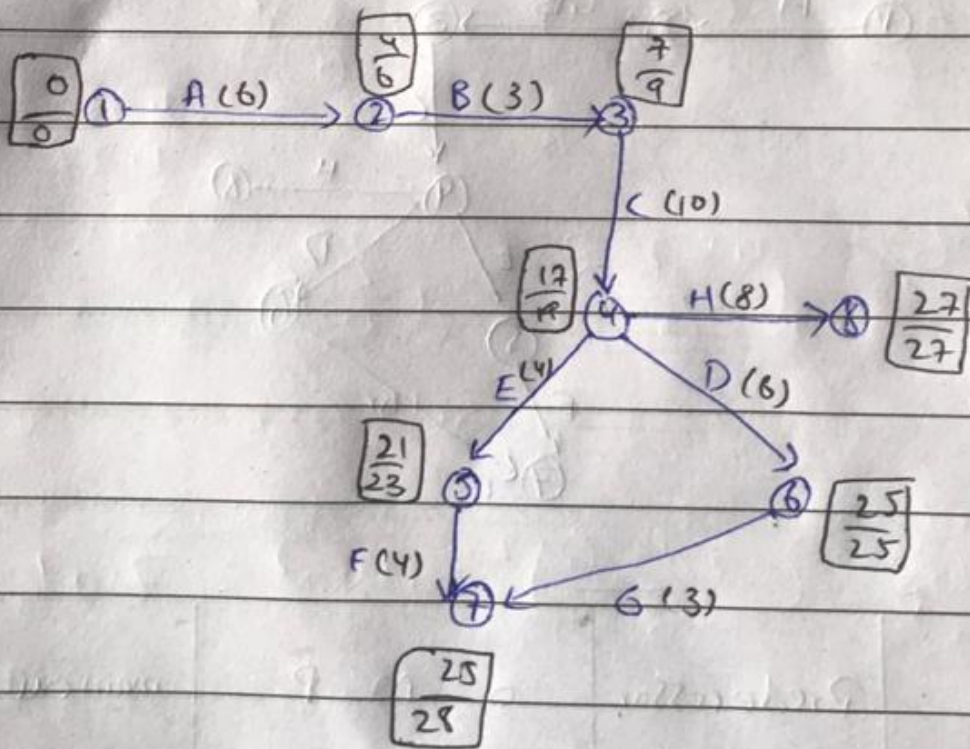 0
0
1
A (6)
4
6
2
B (3)
7
9
3
C (10)
17
4
H (8)
8
27
27
E (4)
D (6)
21
23
5
6
25
25
F (4)
7
G (3)
25
28